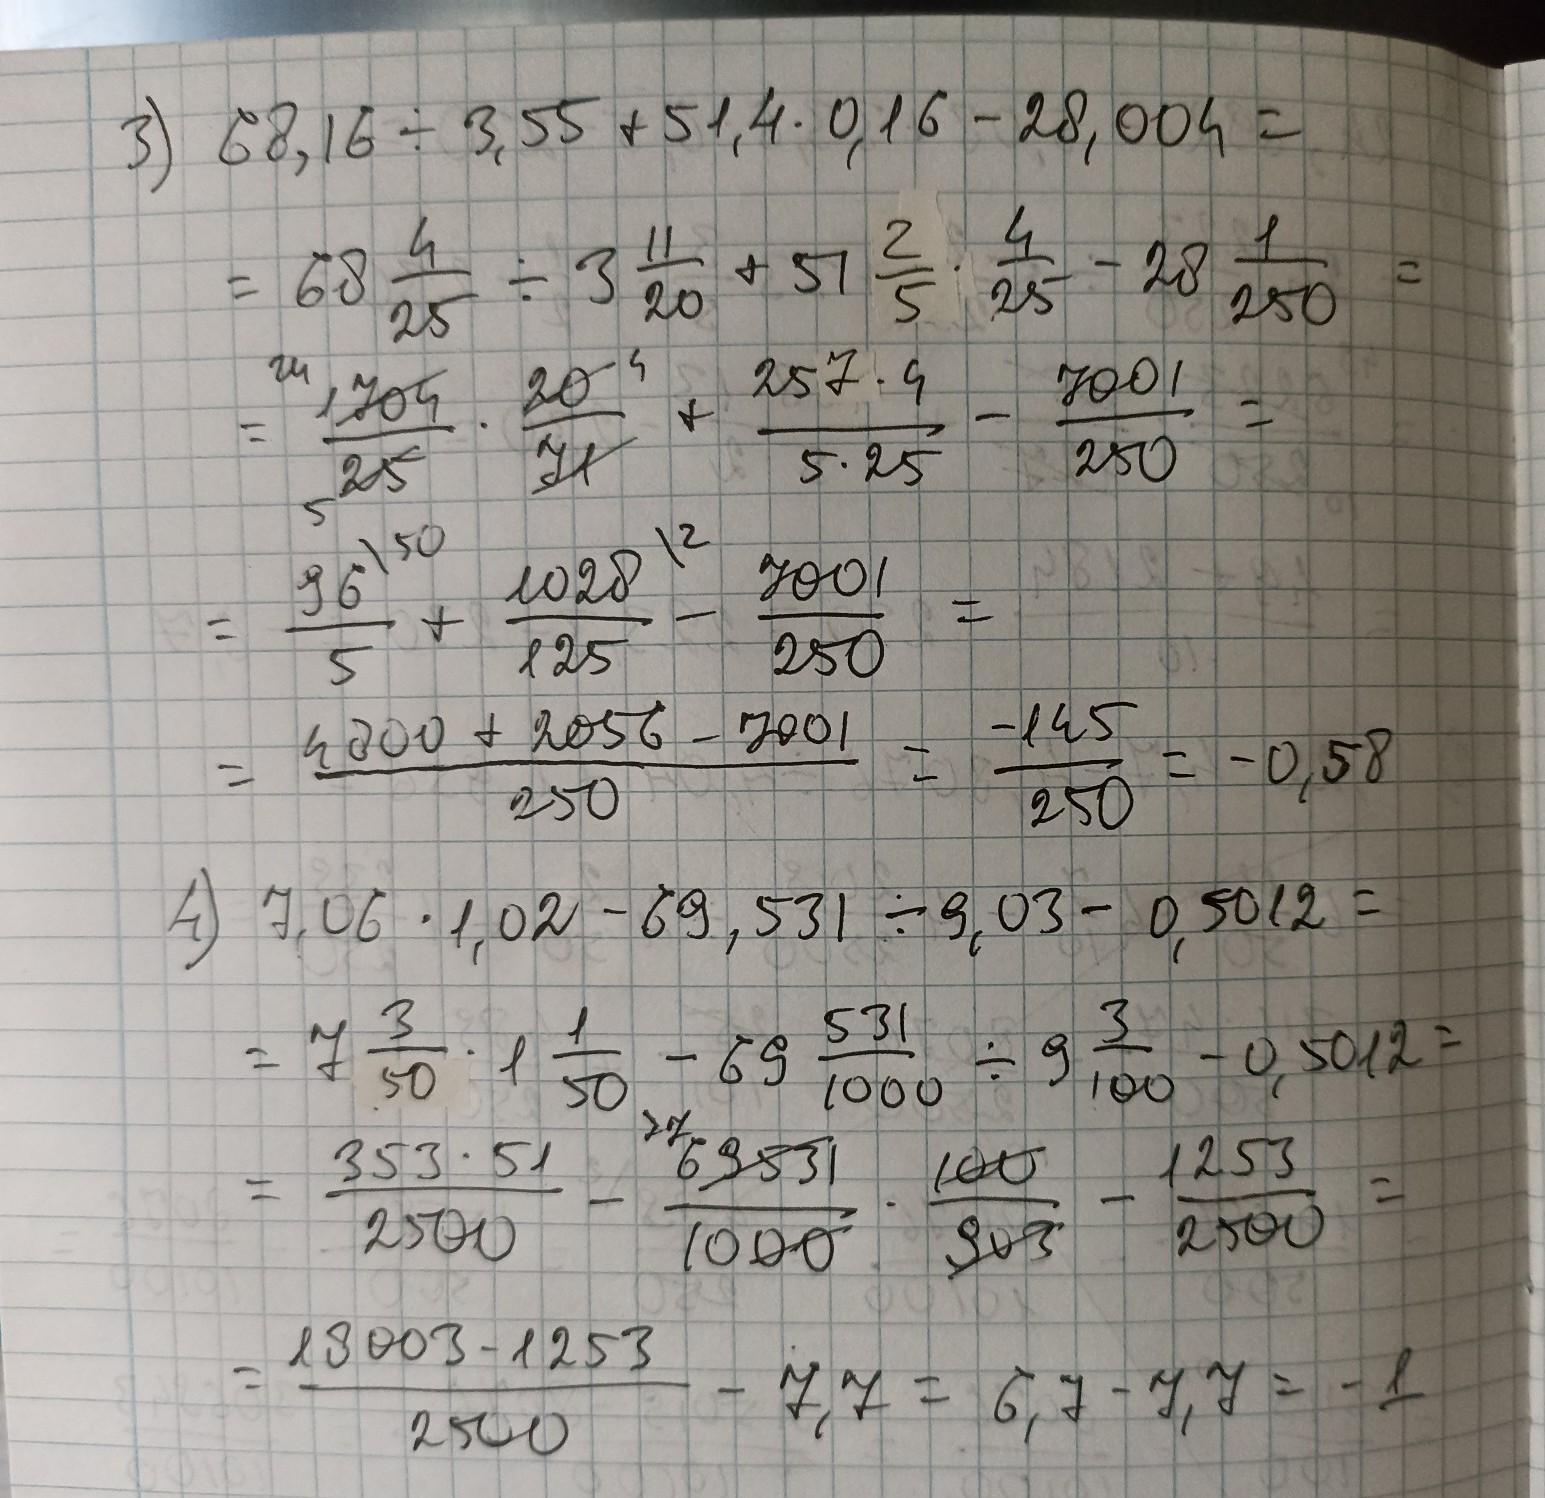 3) 68,16 ÷ 3,55 + 51,4 · 0,16 - 28,004 =
= 68 4/25 ÷ 3 11/20 + 51 2/5 · 4/25 - 28 1/250 =
= 24 1704/25 5 · 20 4/71 + 257 · 4/5 · 25 - 7001/250 =
= 96\50/5 + 1028\2/125 - 7001/250 =
= 4800 + 2056 - 7001/250 = -145/250 = -0,58
4) 7,06 · 1,02 - 69,531 ÷ 9,03 - 0,5012 =
= 7 3/50 · 1 1/50 - 69 531/1000 ÷ 9 3/100 - 0,5012 =
= 353 · 51/2500 - 77 69531/1000 · 100/903 - 1253/2500 =
= 18003 - 1253/2500 - 7,7 = 6,7 - 7,7 = -1